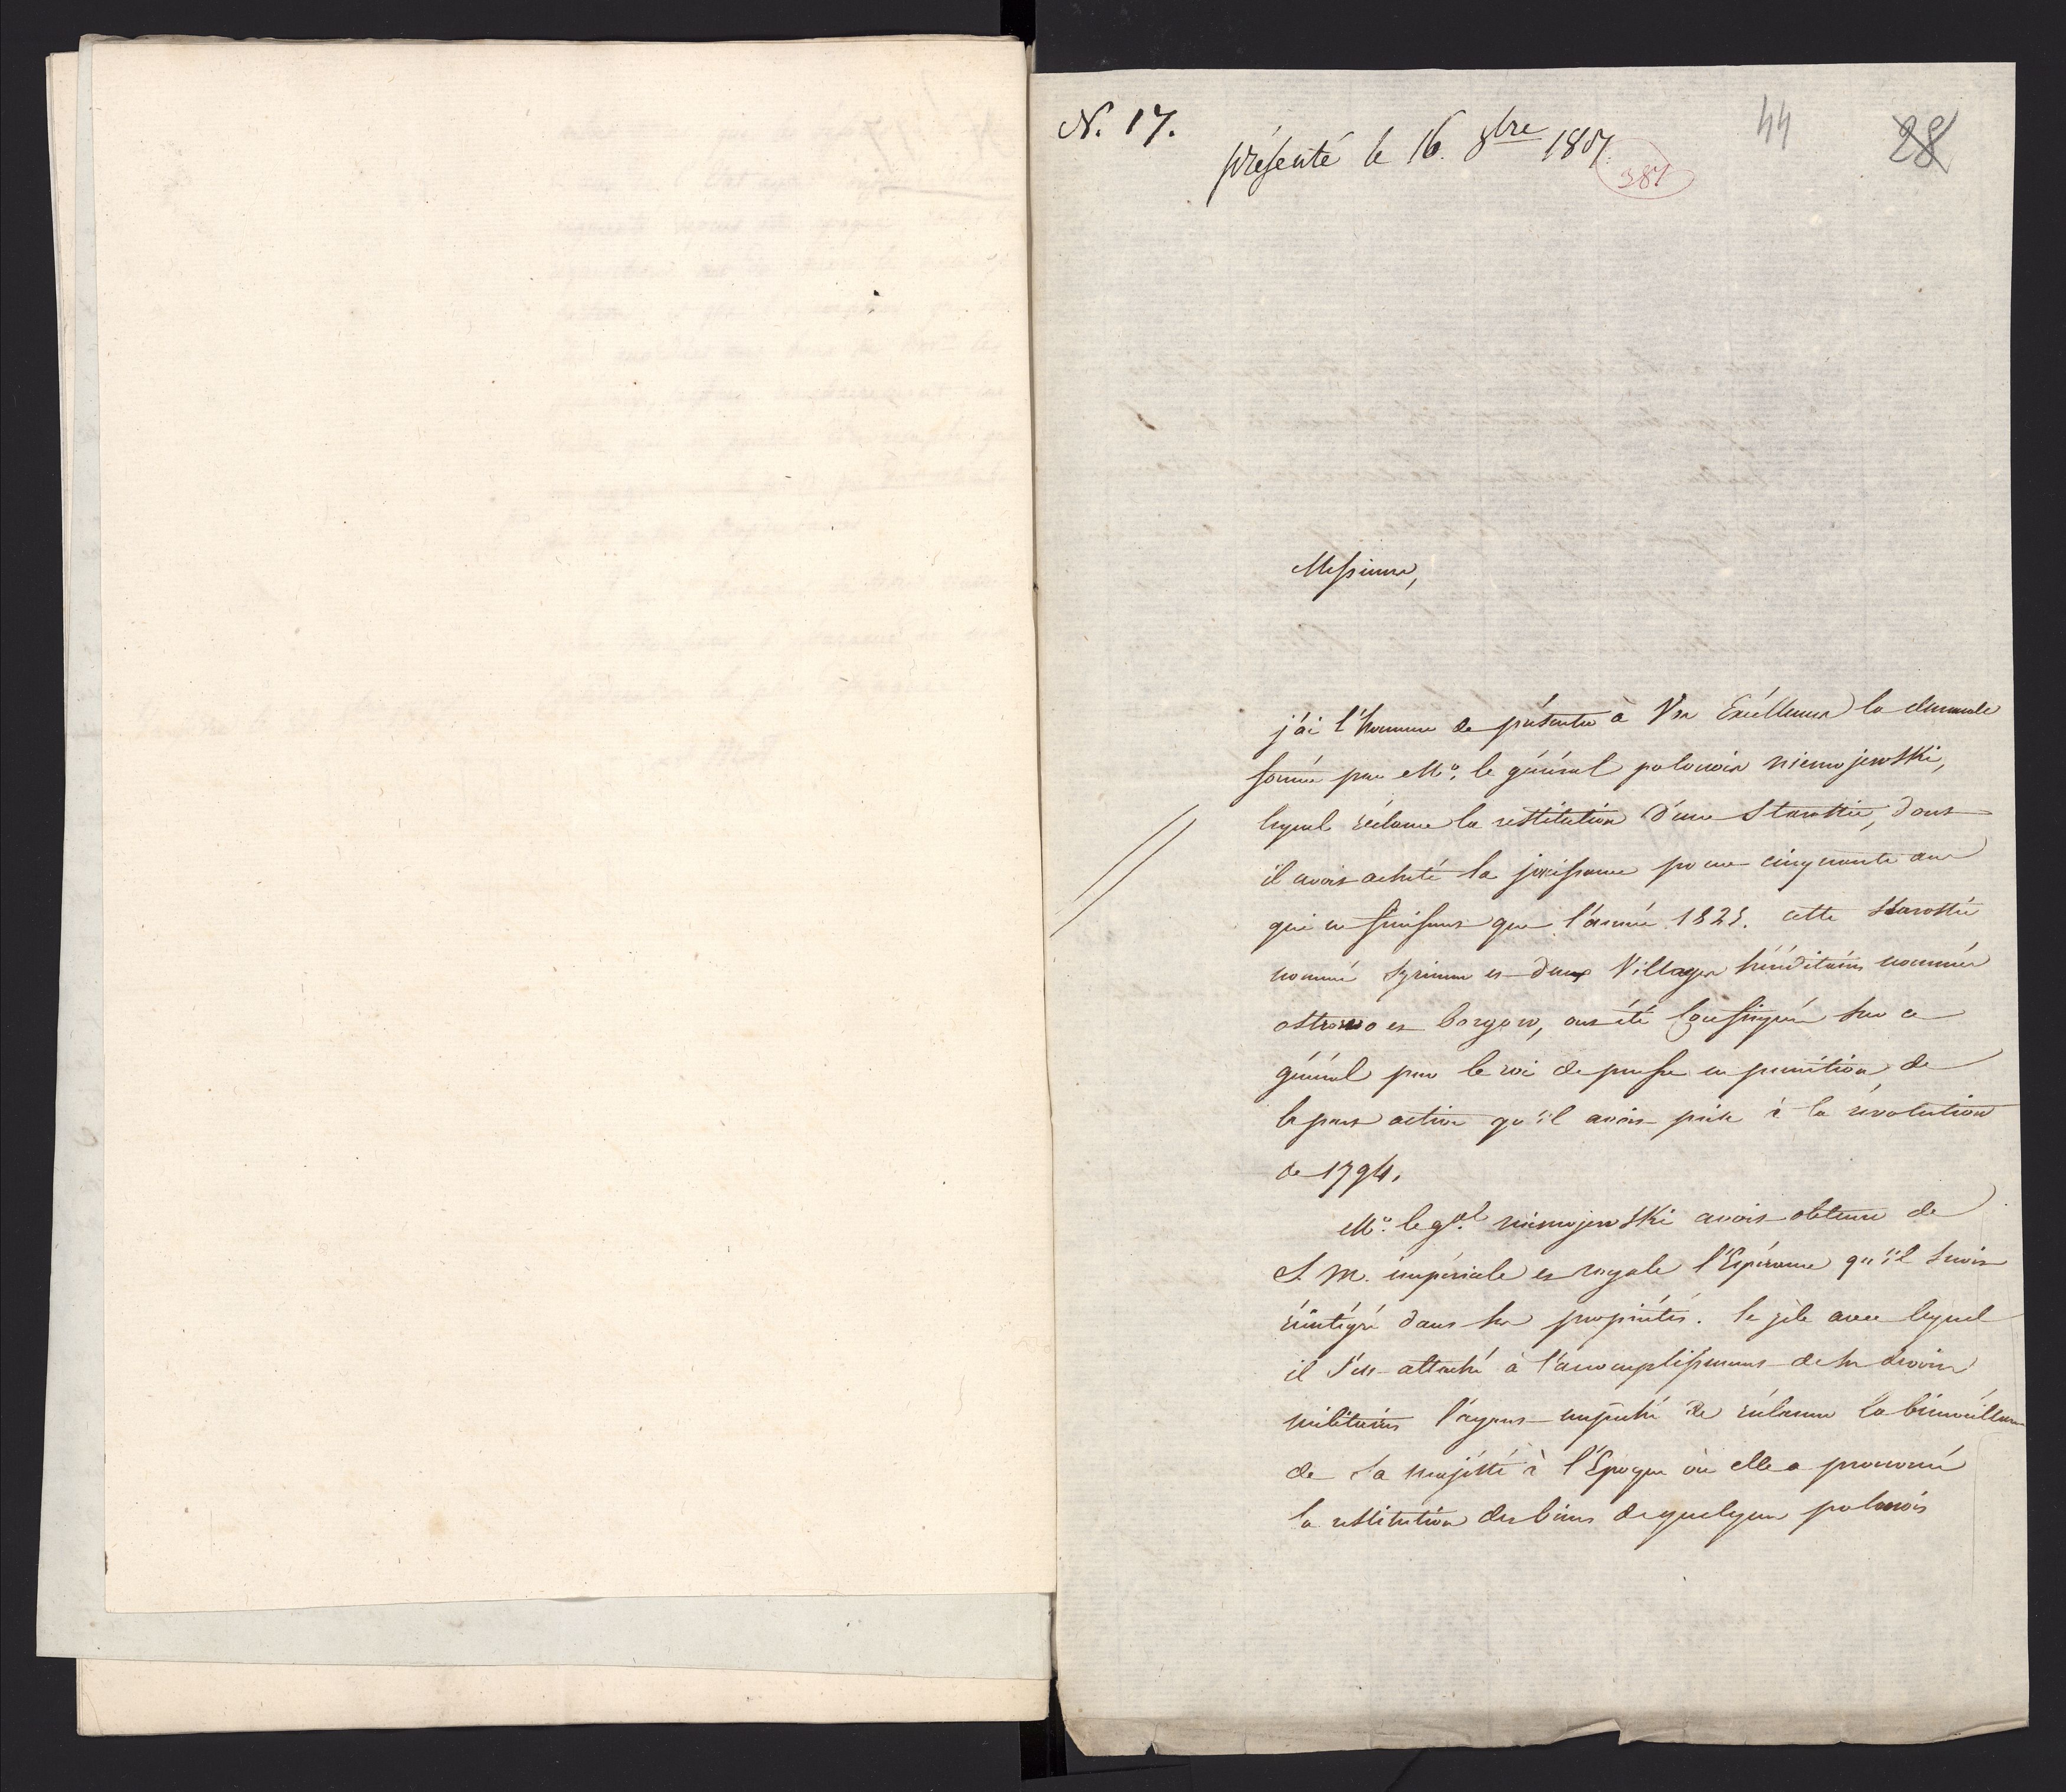 N. 17.
présenté le 16. 8bre 1807
387
44
28
Messieurs,
j'ai l'honneur de présenter à Vos Exéllences la demande
formée par Mr. le général polonois niemojewski,
lequel réclame la restitution d'une Starostie, dont
il avoit acheté la jouissance pour cinquante ans
qui ne finissent que l'année 1825. cette Starostie
nommé Szrimm et deux Villages héréditaires nommés
ostrowo et Corgow, ont été Confisqués sur ce
général par le roi de prusse en punition de
la part active qu'il avoit prise à la révolution
de 1794.
Mr. le gal. niemojewski avoit obtenu de
S. M. impériale et royale l'Espérance qu'il seroit
réintégré dans ses propriétés. le zèle avec lequel
il s'est attaché à l'accomplissement de ses devoirs
militaires l'ayant empêché de réclamer la bienveillance
de Sa Majésté à l'Epoque où elle a prononcé
la restitution des biens de quelques polonois